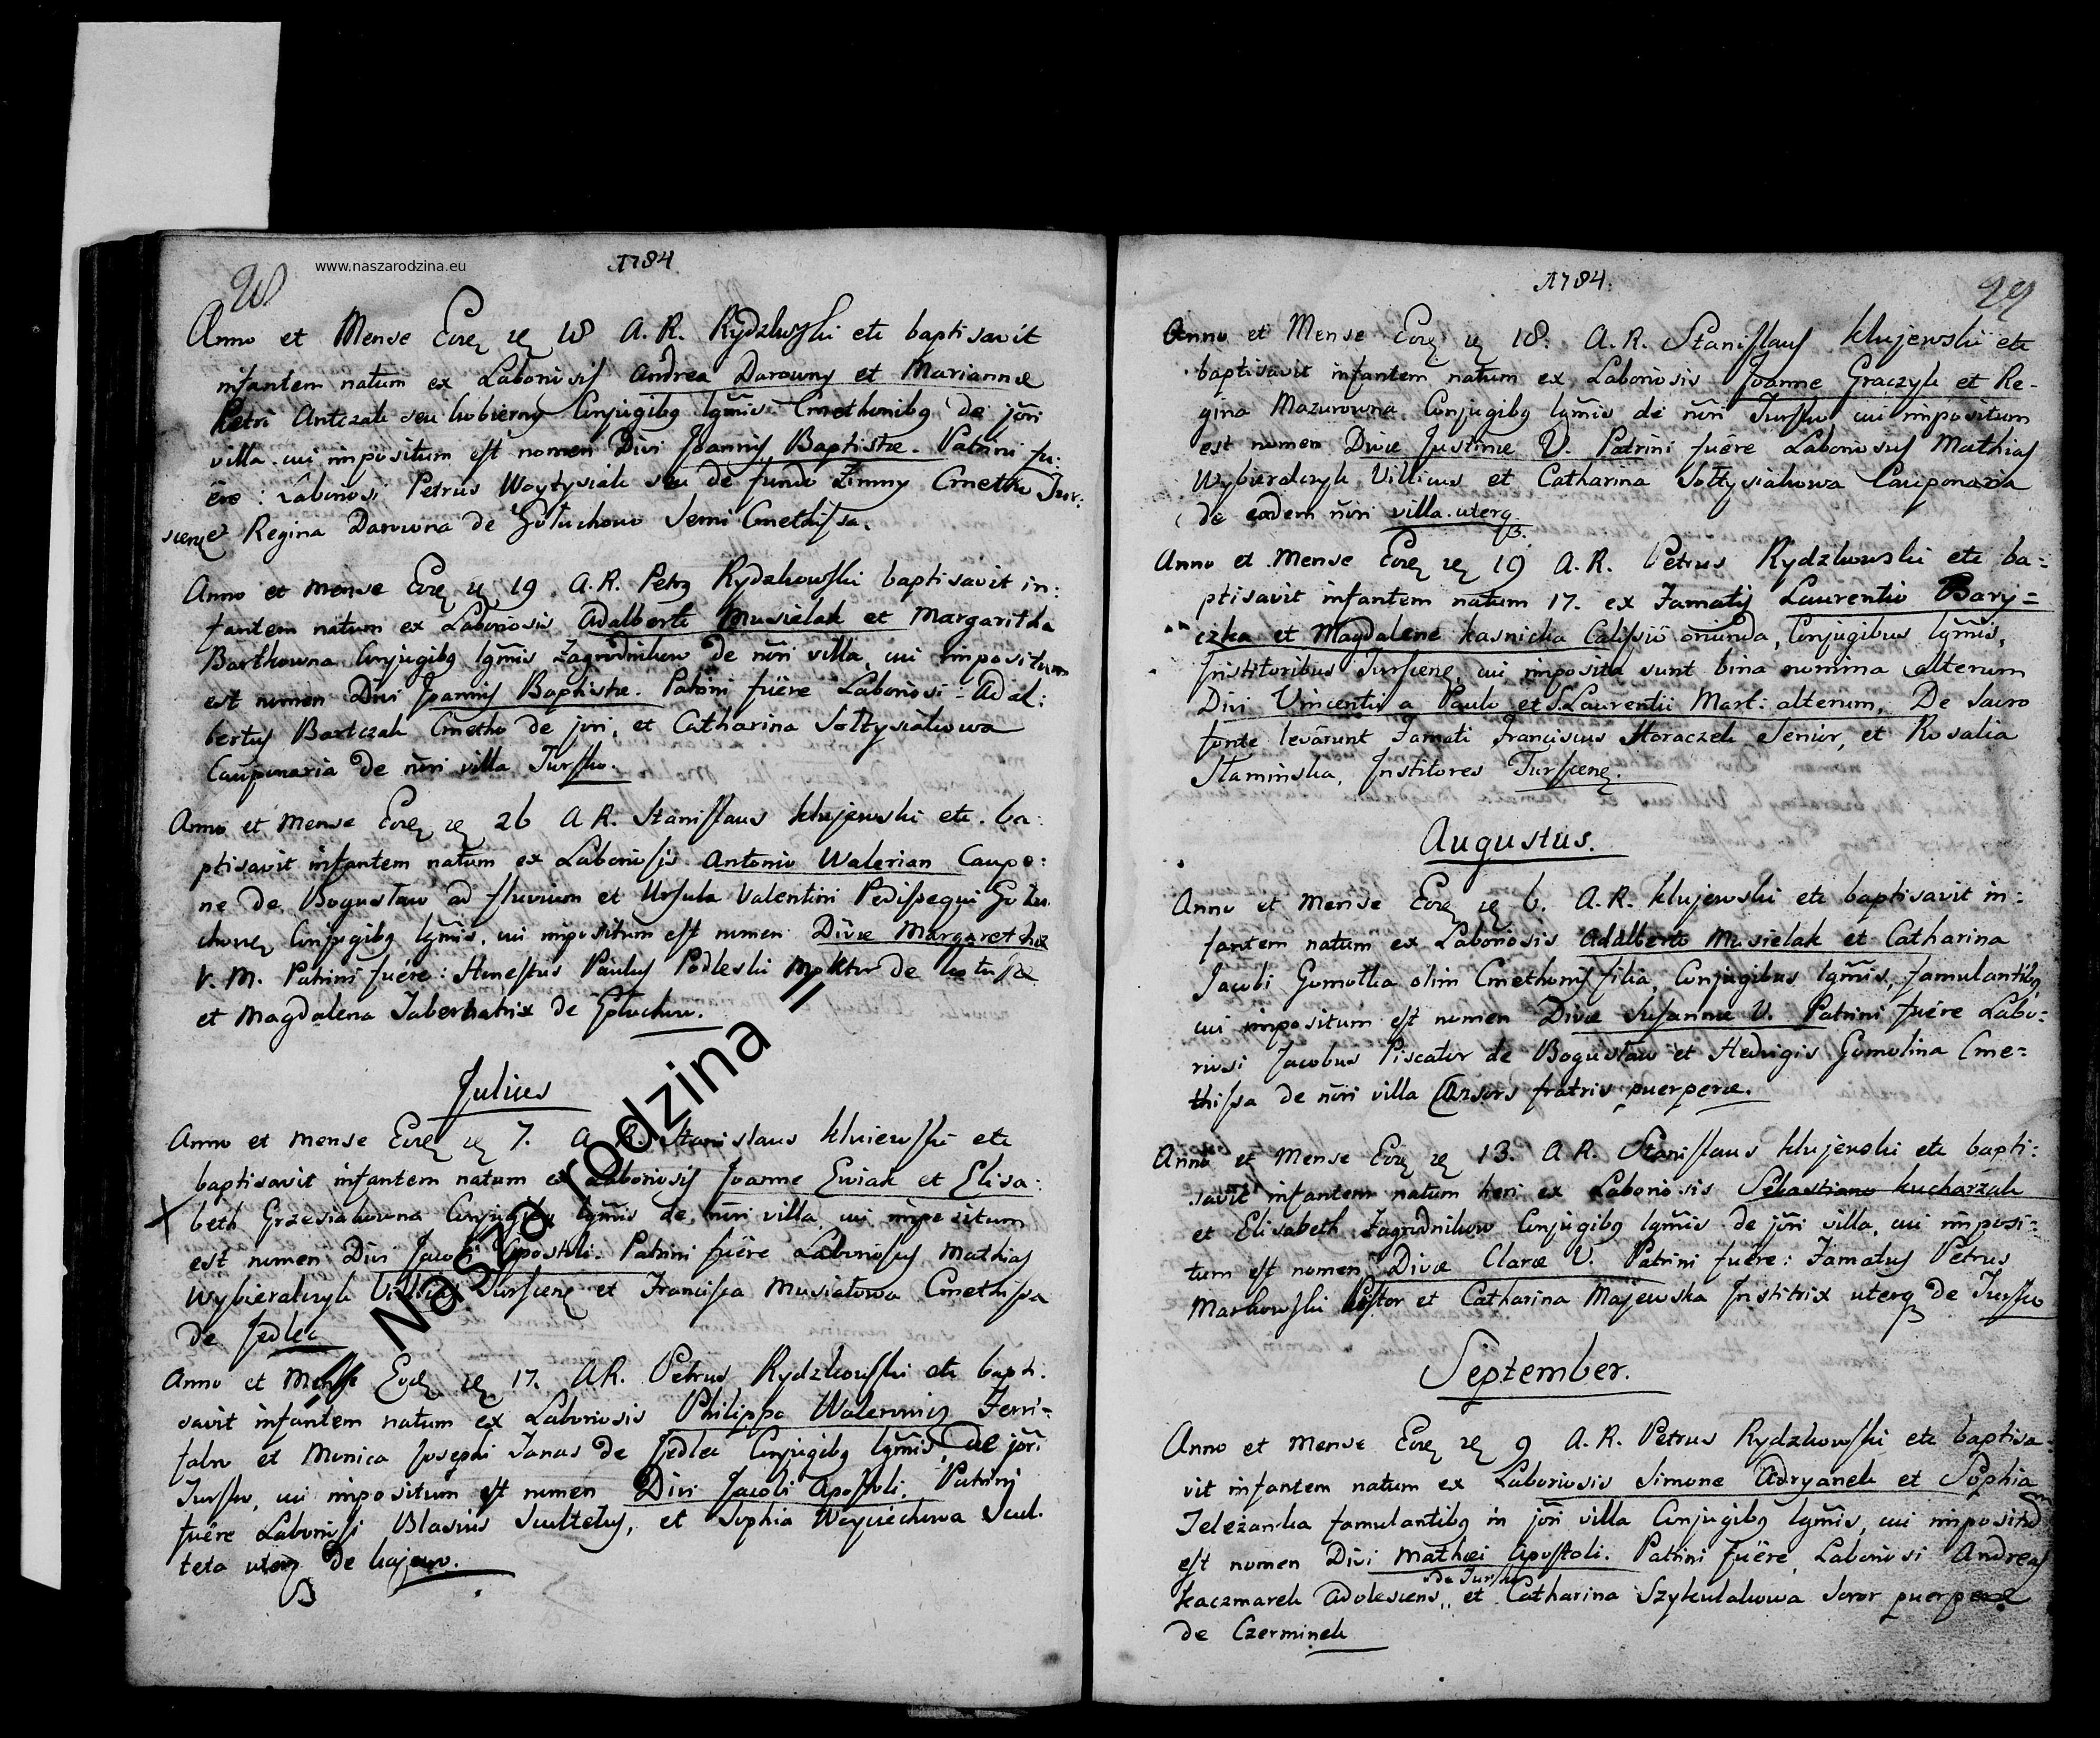 28
www.naszarodzina.eu
1784
Anno et Mense Eodem die 18 A. R. Rydzkowski etc baptisavit
infantem natum ex Laboriosis Andrea Darowny et Marianna
Petri Antczak seu kobierny Conjugibq lgmis Cmethonibq de jori
villa cui impositum est nomen Divi Joannis Baptistæ. Patrini fu:
ēre: Laboriosi Petrus Woytysiak seu de fundo Zimny Cmetho Tur:
sciens et Regina Darowna de Gołuchowo Semi Cmethissa.
Anno et Mense 19 A. R. Petrq Rydzkowski baptisavit in:
fantem natum ex Laboriosis Adalberto Musielak et Margaritha
Barthowna Conjugibq lgmis Zagrodnikow de nōri villa, cui impositum
est nomen Divi Joannis Baptistæ. Patrini fuēre Laboriosi: Adal:
bertus Bartczak Cmetho de jori, et Catharina Sołtysiakowa
Cauponaria de nōri villa Tursko.
Anno et Mense 26 A R. Stanislaus klujewski etc. ba:
ptisavit infantem natum ex Laboriosis Antonio Walerian Caupo:
ne de Bogusław ad fluvium et Ursula Valentini Pedissequi Gołu
chowen Conjugibq lgmis, cui impositum est nomen Divæ Margarethæ
V. M. Patrini fuēre: Honestus Paulus Podleski Molitor de
et Magdalena Tabernatrix de Gołuchow.
Julius
Anno et Mense 7. A R. Stanislaus kluiewski etc
baptisavit infantem natum ex Laboriosis Joanne Ewiak et Elisa:
beth Grzesiakowna Conjugibq lgmis de nōri villa, cui impositum
est nomen Divi Jacobi Apostoli. Patrini fuēre Laboriosus Mathias
Wybieralczyk Villicus Turscienq et Francisca Musiałowa Cmethissa
de Jedlec
Anno et Mense 17. A R. Petrus Rydzkowski etc bapti:
savit infantem natum ex Laboriosis Philippo Walerowicz Ferri=
fabro et Monica Josephi Janas de Jedlec Conjugibq lgmis, de jori
Tursko, cui impositum est nomen Divi Jacobi Apostoli. Patrini
fuēre Laboriosi Blasius Scultetus, et Sophia Woyciechowa Scul.
teta uterq de kajewo.
" Nasza rodzina "
1784.
29
Anno et Mense 18. A. R. Stanislaus klujewski etc
baptisavit infantem natum ex Laboriosis Joanne Graczyk et Re-
gina Mazurowna Conjugibq lgmis de nōri Tursko cui impositum
est nomen Divæ Justinæ V. Patrini fuēre Laboriosus Mathias
Wybieralczyk Villicus et Catharina Sołtysiakowa Cauponaria
de eadem nōri villa uterq.
Anno et Mense 19 A. R. Petrus Rydzkowski etc ba=
ptisavit infantem natum 17. ex Famatis Laurentio Bary=
czka et Magdalene kasnicka Calissio oriunda, Conjugibus lgmis,
Institoribus Turscienq, cui imposita sunt bina nomina alterum
Divi Vincentii a Paulo et S. Laurentii Mart: alterum. De Sacro
fonte levārunt Famati Franciscus Horaczek Senior, et Rosalia
Stamińska, Institores Turscienq.
Augustus.
Anno et Mense 6. A. R. klujewski etc baptisavit in:
fantem natum ex Laboriosis Adalberto Musielak et Catharina
Jacobi Gomołka olim Cmethonis filia, Conjugibus lgmis, famulantibq,
cui impositum est nomen Divæ Susannæ V. Patrini fuēre Labo=
riosi Jacobus Piscator de Bogusław et Hedvigis Gomolina Cme=
thissa de nōri villa Consors fratris puerperæ.
Anno et Mense 13. A R. Stanislaus klujewski etc bapti:
savit infantem natum heri ex Laboriosis Sebastiano kucharzak
et Elisabeth Zagrodnikow Conjugibq lgmis de jori villa, cui imposi=
tum est nomen Divæ Claræ V. Patrini fuēre: Famatus Petrus
Markowski Pistor et Catharina Majewska Institrix uterq de Tursko
September.
Anno et Mense 9 A. R. Petrus Rydzkowski etc baptisa
vit infantem natum ex Laboriosis Simone Adryanek et Sophia
Jeleżanka famulantibq in jori villa Conjugibq lgmis, cui impositum
est nomen Divi Mathæi Apostoli. Patrini fuēre, Laboriosi Andreas
de Tursko
kaczmarek Adolescens,, et Catharina Szykulakowa Soror puerperæ
de Czerminek